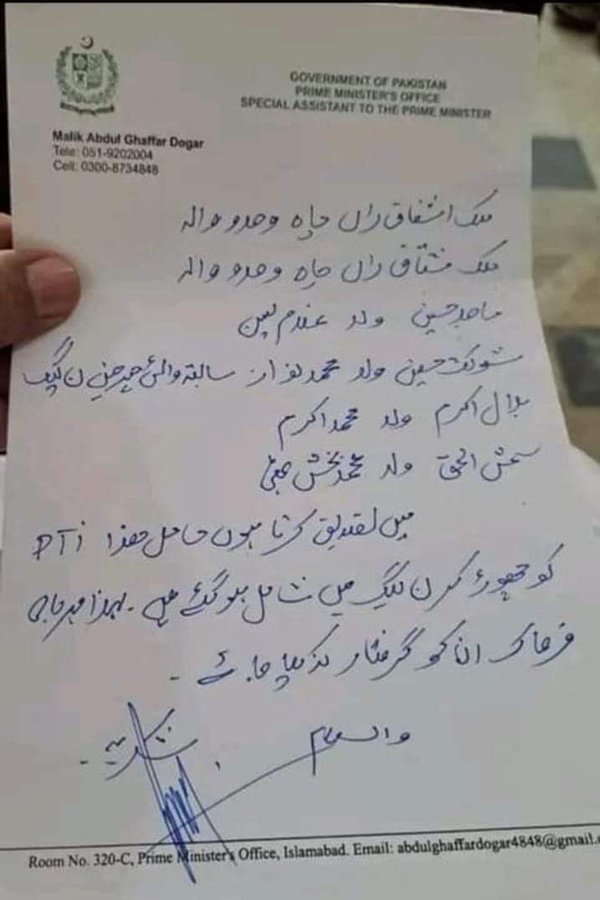 GOVERNMENT OF PAKISTAN
PRIME MINISTER'S OFFICE
SPECIAL ASSISTANT TO THE PRIME MINISTER
Malik Abdul Ghaffar Dogar
Tele: 051-9202004
Cell: 0300-8734848
ملک اشفاق راں چاہ وحدو والہ
ملک مشتاق راں چاہ وحدو والہ
ماجد حسین ولد غلام یسین
شوکت حسین ولد محمد نواز سابقہ وائس چیئرمین ن لیگ
بلال اکرم ولد محمد اکرم
شمش الحق ولد محمد بخش
میں تصدیق کرتا ہوں حامل ھذا PTi
کو چھوڑ کر ن لیگ میں شامل ہو گئے ہیں۔ لہذا مہربانی
فرما کر ان کو گرفتار نہ کیا جائے۔
والسلام
شکریہ۔
Room No. 320-C, Prime Minister's Office, Islamabad. Email: abdulghaffardogar4848@gmail.